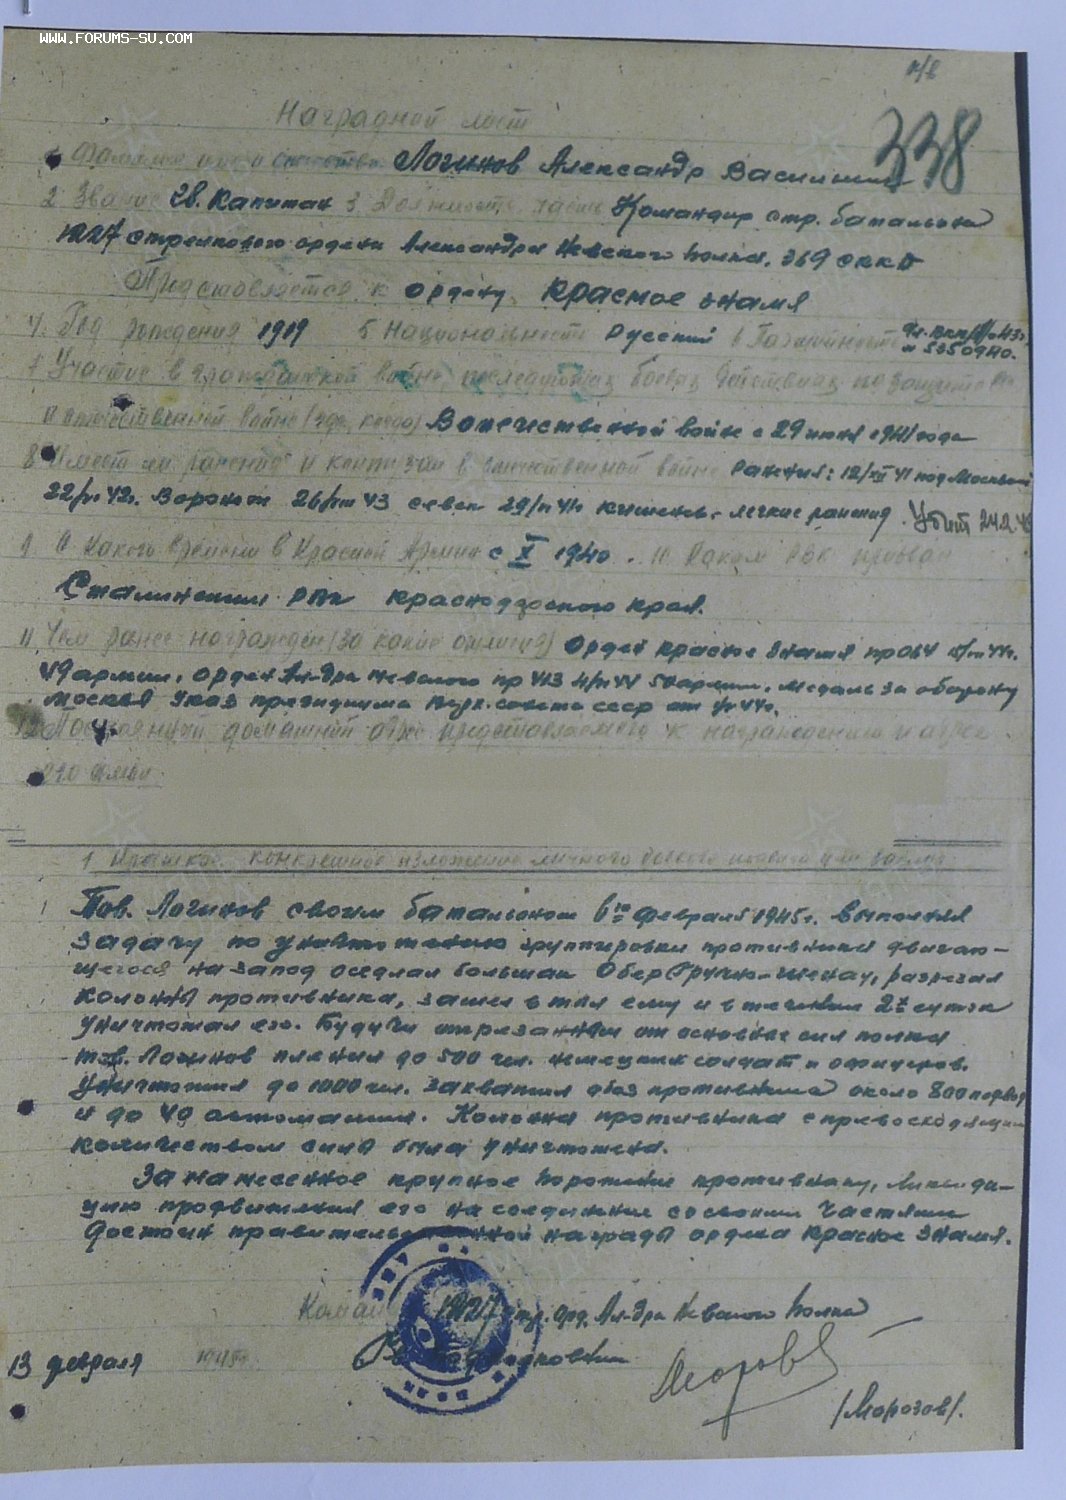 WWW.FORUMS-SU.COM
н/в
338
Наградной лист
Фамилия имя и отчество Логинов Александр Васильевич
2 Звание Гв. Капитан 3 Должность, часть Командир стр. батальона
1227 стрелкового ордена Александра Невского полка, 369 сккд
Представляется к ордену Красное знамя
4. Год рождения 1919 5 Национальность Русский 6 Партийность
5350940.
7 Участие в гражданской войне, последующих боевых действиях по защите
и отечественной войне (где, когда) В отечественной войне с 29 июня 1941 года
8 Имеет ли ранения и контузии в отечественной войне Ранения: 12/XII 41 под Москвой
22/ 42г. Воронеж 26/VIII 43 Севск 29/ 44г легкие ранения. Убит 24.2.45
9 С какого времени в Красной Армии с X 1940. 10 Каким РВК призван
Сталинским РВК Краснодарского края.
11. Чем ранее награжден (за какие отличия) Орден Красное Знамя пр 064
49 армии, орден Ал-дра Невского пр 413 50 армии. Медаль за оборону
Москвы Указ президиума Верх. совета СССР от
12 Постоянный домашний адрес представляемого к награждению и адрес
его семьи
1 Краткое, конкретное изложение личного боевого подвига или заслуг
Тов. Логинов своим батальоном 6го февраля 1945г. выполняя
задачу по уничтожению группировки противника двигаю-
щегося на запад оседлал большак Обер Гручно-Шенау, разрезал
колонны противника, зашел в тыл ему и в течение 2х суток
уничтожал его. Будучи отрезанным от основных сил полка
тов. Логинов пленил до 500 чел. немецких солдат и офицеров.
Уничтожил до 1000 чел. захватил обоз противника около 800 подвод
и до 40 автомашин. Колонна противника с превосходящим
количеством сил была уничтожена.
За нанесенное крупное поражение противнику, ликвида-
цию продвижения его на соединение со своими частями
Достоин правительственной награды ордена Красное Знамя.
1227 стр. орд. Ал-дра Невского полка
13 февраля 1945г.
/Морозов/.